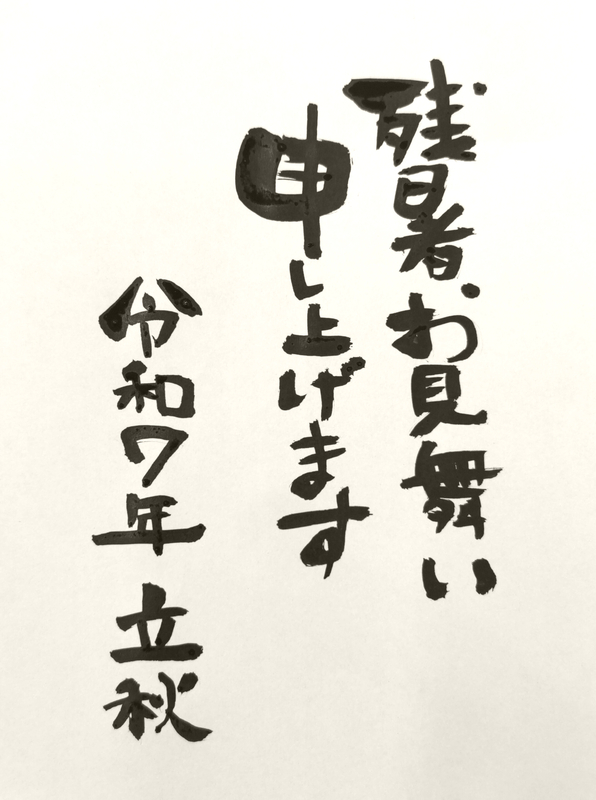 残暑お見舞い
申し上げます
令和7年 立秋